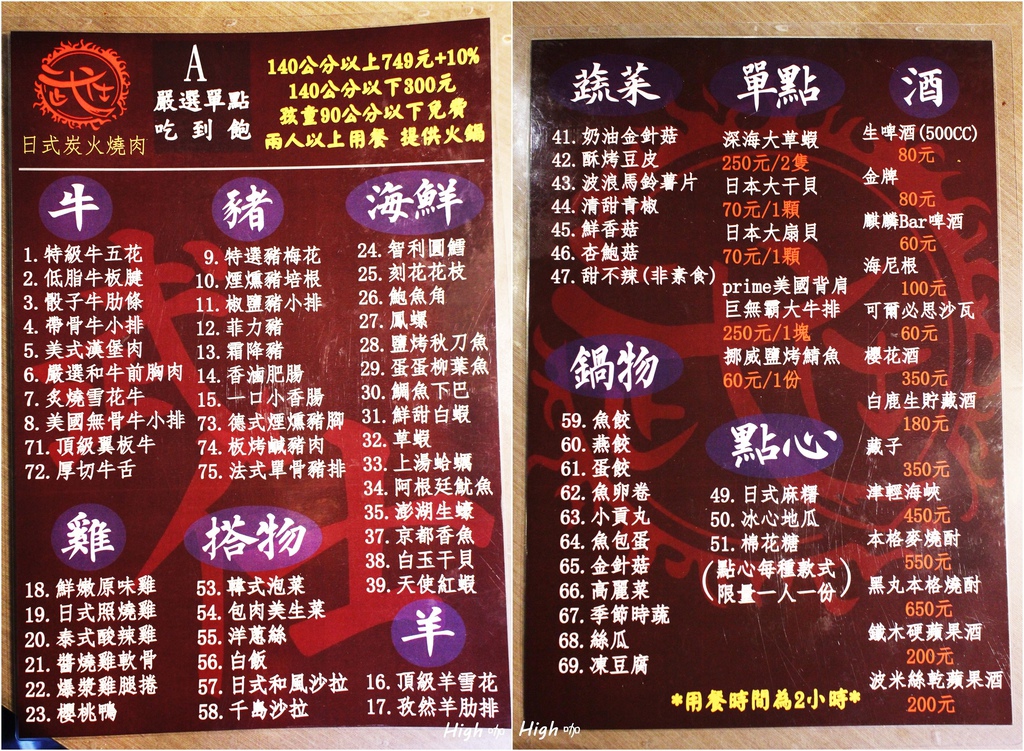 日式炭火燒肉
A
嚴選單點
吃到飽
140公分以上749元+10%
140公分以下300元
孩童90公分以下免費
兩人以上用餐 提供火鍋
牛
1. 特級牛五花
2. 低脂牛板腱
3. 骰子牛肋條
4. 帶骨牛小排
5. 美式漢堡肉
6. 嚴選和牛前胸肉
7. 炙燒雪花牛
8. 美國無骨牛小排
71. 頂級翼板牛
72. 厚切牛舌
豬
9. 特選豬梅花
10. 煙燻豬培根
11. 椒鹽豬小排
12. 菲力豬
13. 霜降豬
14. 香滷肥腸
15. 一口小香腸
73. 德式煙燻豬腳
74. 板烤鹹豬肉
75. 法式單骨豬排
海鮮
24. 智利圓鱈
25. 刻花花枝
26. 鮑魚角
27. 鳳螺
28. 鹽烤秋刀魚
29. 蛋蛋柳葉魚
30. 鯛魚下巴
31. 鮮甜白蝦
32. 草蝦
33. 上湯蛤蠣
34. 阿根廷魷魚
35. 澎湖生蠔
37. 京都香魚
38. 白玉干貝
39. 天使紅蝦
雞
18. 鮮嫩原味雞
19. 日式照燒雞
20. 泰式酸辣雞
21. 醬燒雞軟骨
22. 爆漿雞腿捲
23. 櫻桃鴨
搭物
53. 韓式泡菜
54. 包肉美生菜
55. 洋蔥絲
56. 白飯
57. 日式和風沙拉
58. 千島沙拉
羊
16. 頂級羊雪花
17. 孜然羊肋排
High 咖
蔬菜
41. 奶油金針菇
42. 酥烤豆皮
43. 波浪馬鈴薯片
44. 清甜青椒
45. 鮮香菇
46. 杏鮑菇
47. 甜不辣(非素食)
鍋物
59. 魚餃
60. 燕餃
61. 蛋餃
62. 魚卵卷
63. 小貢丸
64. 魚包蛋
65. 金針菇
66. 高麗菜
67. 季節時蔬
68. 絲瓜
69. 凍豆腐
單點
深海大草蝦
250元/2隻
日本大干貝
70元/1顆
日本大扇貝
70元/1顆
prime美國背肩
巨無霸大牛排
250元/1塊
挪威鹽烤鯖魚
60元/1份
點心
49. 日式麻糬
50. 冰心地瓜
51. 棉花糖
(點心每種款式
限量一人一份)
酒
生啤酒(500CC)
80元
金牌
80元
麒麟Bar啤酒
60元
海尼根
100元
可爾必思沙瓦
60元
櫻花酒
350元
白鹿生貯藏酒
180元
藏子
350元
津輕海峽
450元
本格麥燒酎
550元
黑丸本格燒酎
650元
鐵木硬蘋果酒
200元
波米絲乾蘋果酒
200元
*用餐時間為2小時*
High 咖